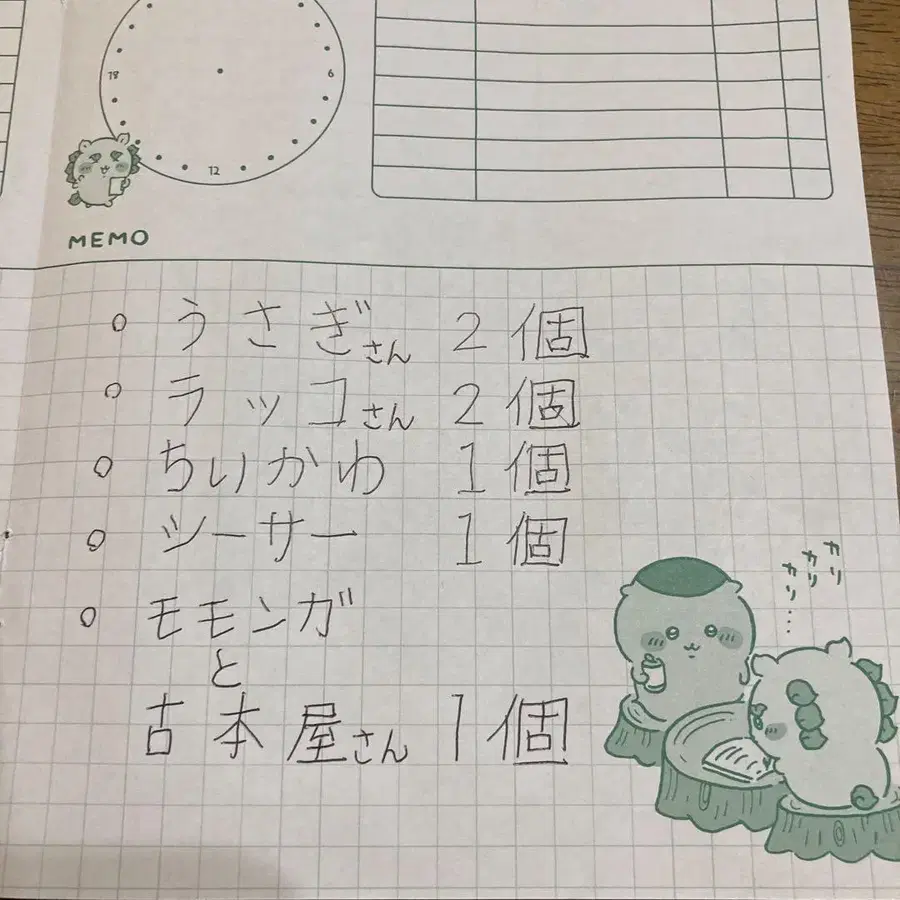 18
6
12
MEMO
○ うさぎさん 2個
○ ラッコさん 2個
○ ちいかわ 1個
○ シーサー 1個
○ モモンガ
と
古本屋さん 1個
カリ
カリ
カリ…